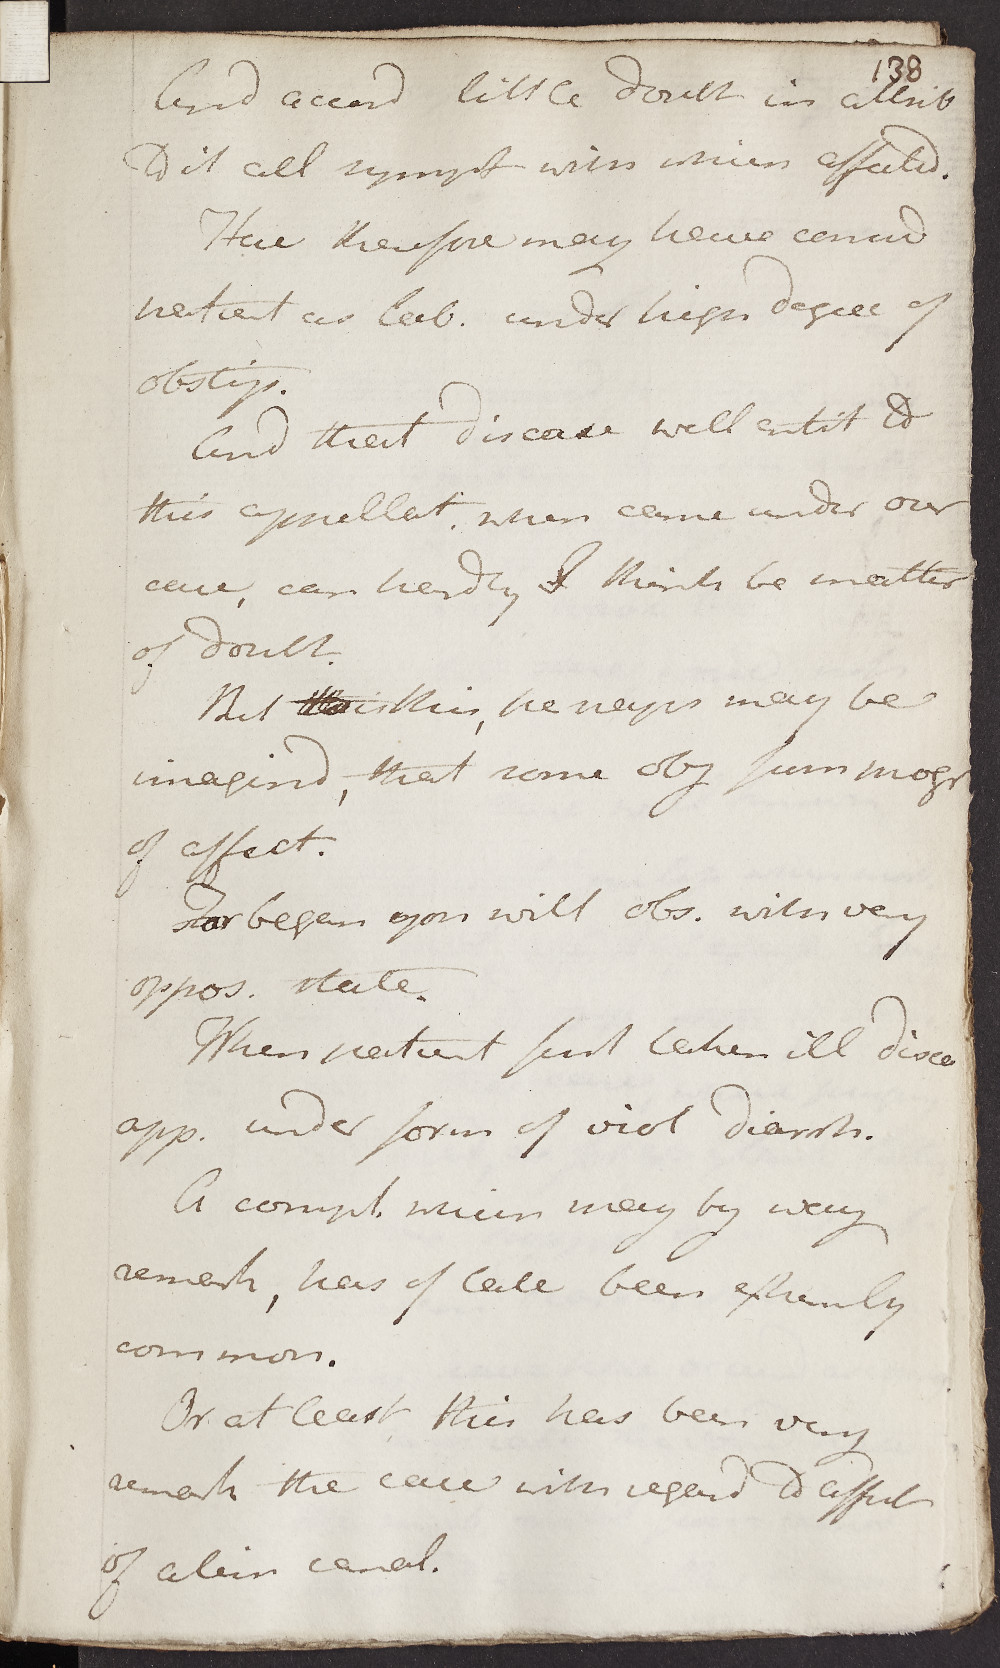 138
And accord little doubt in attrib
to it all sympt with which affected.
Here therefore may have consid
patient as lab. under high degree of
obstip.
And that disease well entit to
this appellat. when came under our
care, can hardly I think be matter
of doubt.
But this, perhaps may be
imagind, that some obj from progr
of affect.
For began you will obs. with very
oppos. state.
When patient first taken ill disea
app. under form of viol diarrh.
A compl. which may by way
remark, has of late been extremly
common.
Or at least this has been very
remark the case with regard to affect
of alim canal.